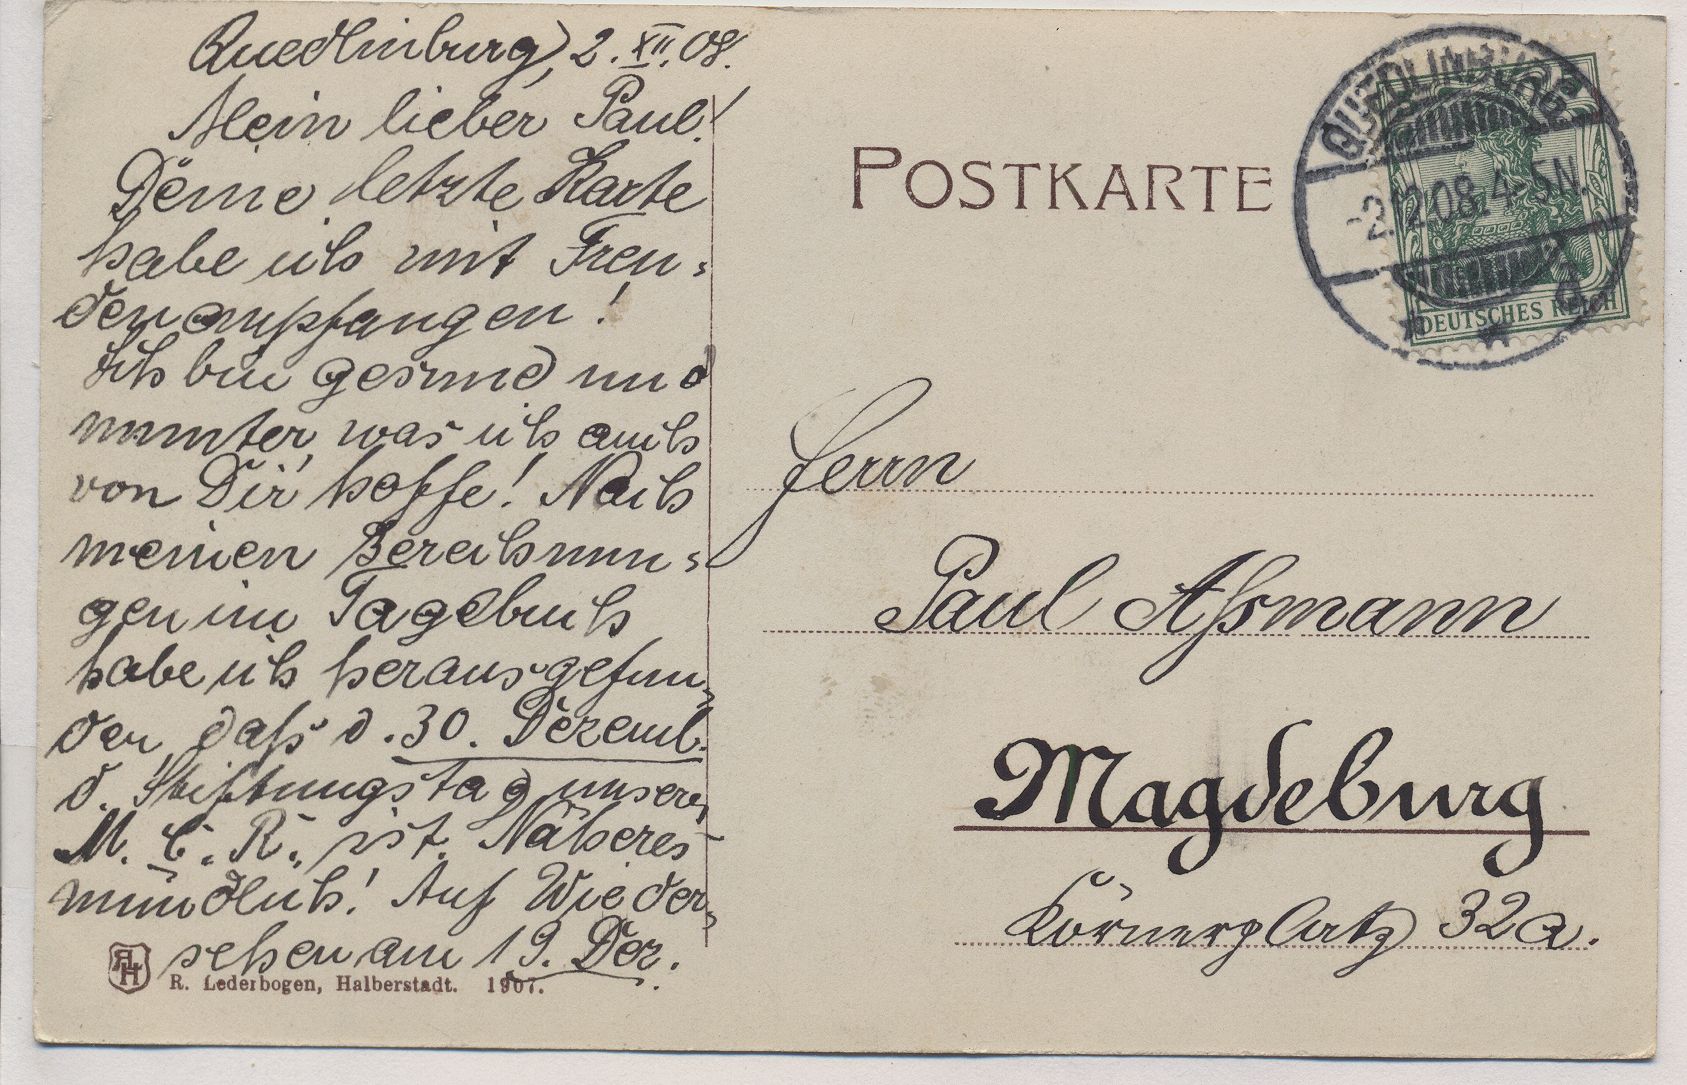 Quedlinburg, 2. XII. 08.
Mein lieber Paul!
Deine letzte Karte
habe ich mit Freu-
den empfangen!
Ich bin gesund und
munter, was ich auch
von Dir hoffe! Nach
meinen Berechnun-
gen im Tagebuch
habe ich herausgefun-
den, daß d. 30. Dezemb.
d. Stiftungstag unseres
M. C. R. ist. Näheres
mündlich! Auf Wieder-
sehen am 19. Dez.
RH
R. Lederbogen, Halberstadt. 1907.
POSTKARTE
QUEDLINBURG
2.12.08.4-5N.
d
DEUTSCHES REICH
Herrn
Paul Aßmann
Magdeburg
Körnerplatz 32a.